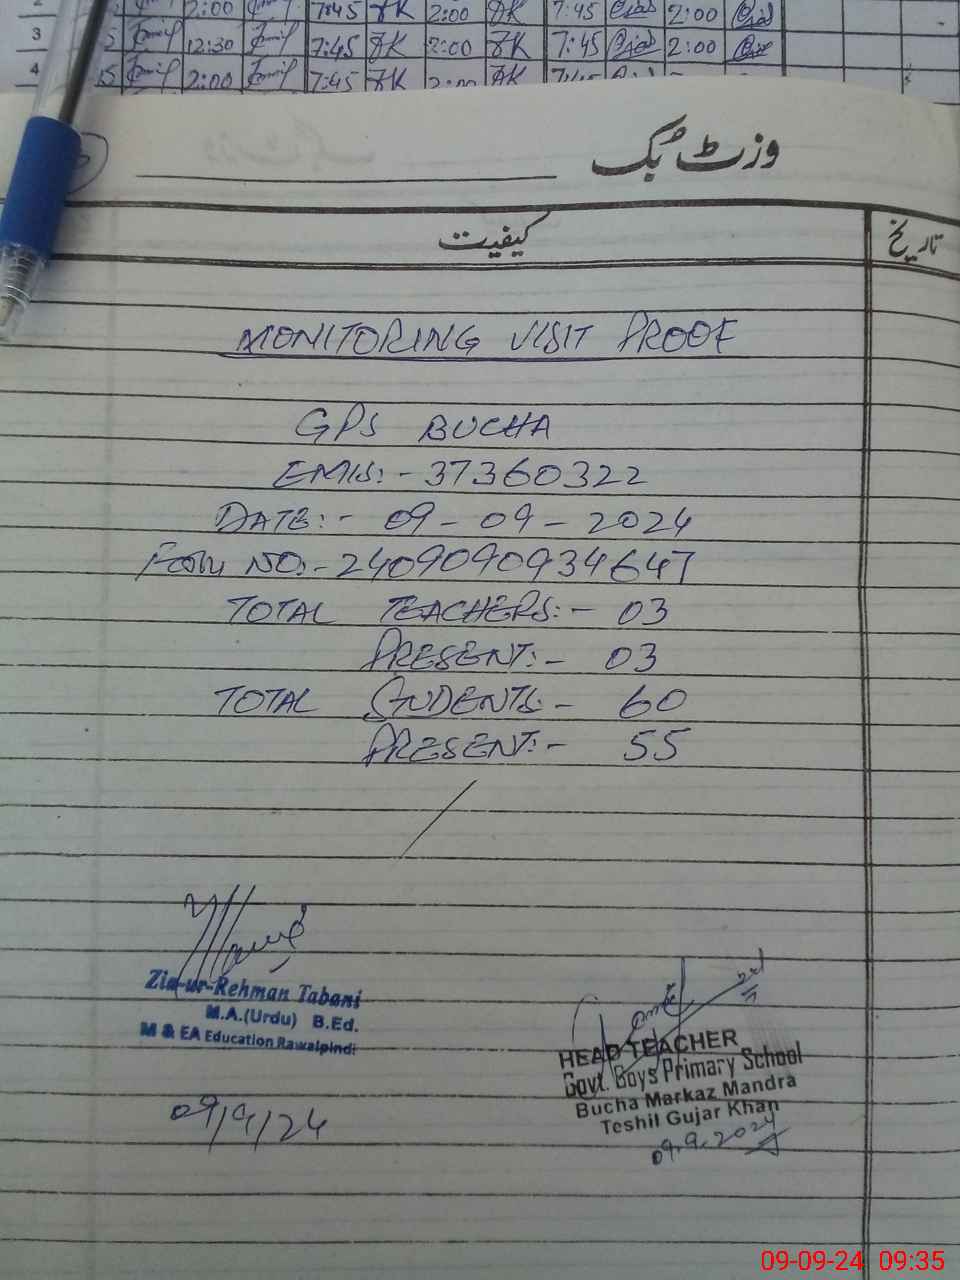 3 12:30 7:45 2:00 7:45 2:00
4 2:00 7:45 2:00
وزٹ بک
کیفیت تاریخ
MONITORING VISIT PROOF
GPS BUCHA
EMIS:- 37360322
DATE:- 09-09-2024
Form NO:- 2409090934647
TOTAL TEACHERS:- 03
PRESENT:- 03
TOTAL STUDENTS:- 60
PRESENT:- 55
Zia-ur-Rehman Tabani
M.A.(Urdu) B.Ed.
M & EA Education Rawalpindi
09/9/24
HEAD TEACHER
Govt. Boys Primary School
Bucha Markaz Mandra
Teshil Gujar Khan
09.9.2024
09-09-24 09:35